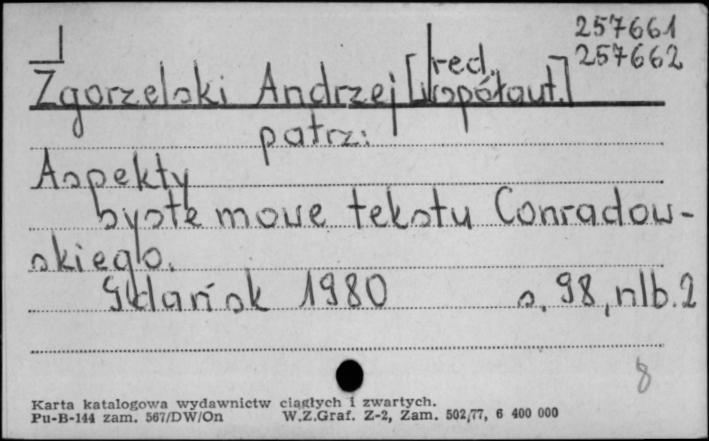 257661
257662
red.
Zgorzelski Andrzej [współaut.]
patrz:
Aspekty
systemowe tekstu Conradow-
skiego.
Gdańsk 1980 s. 98, nlb. 2
8
Karta katalogowa wydawnictw ciągłych i zwartych.
Pu-B-144 zam. 567/DW/On W.Z.Graf. Z-2, Zam. 502/77, 6 400 000